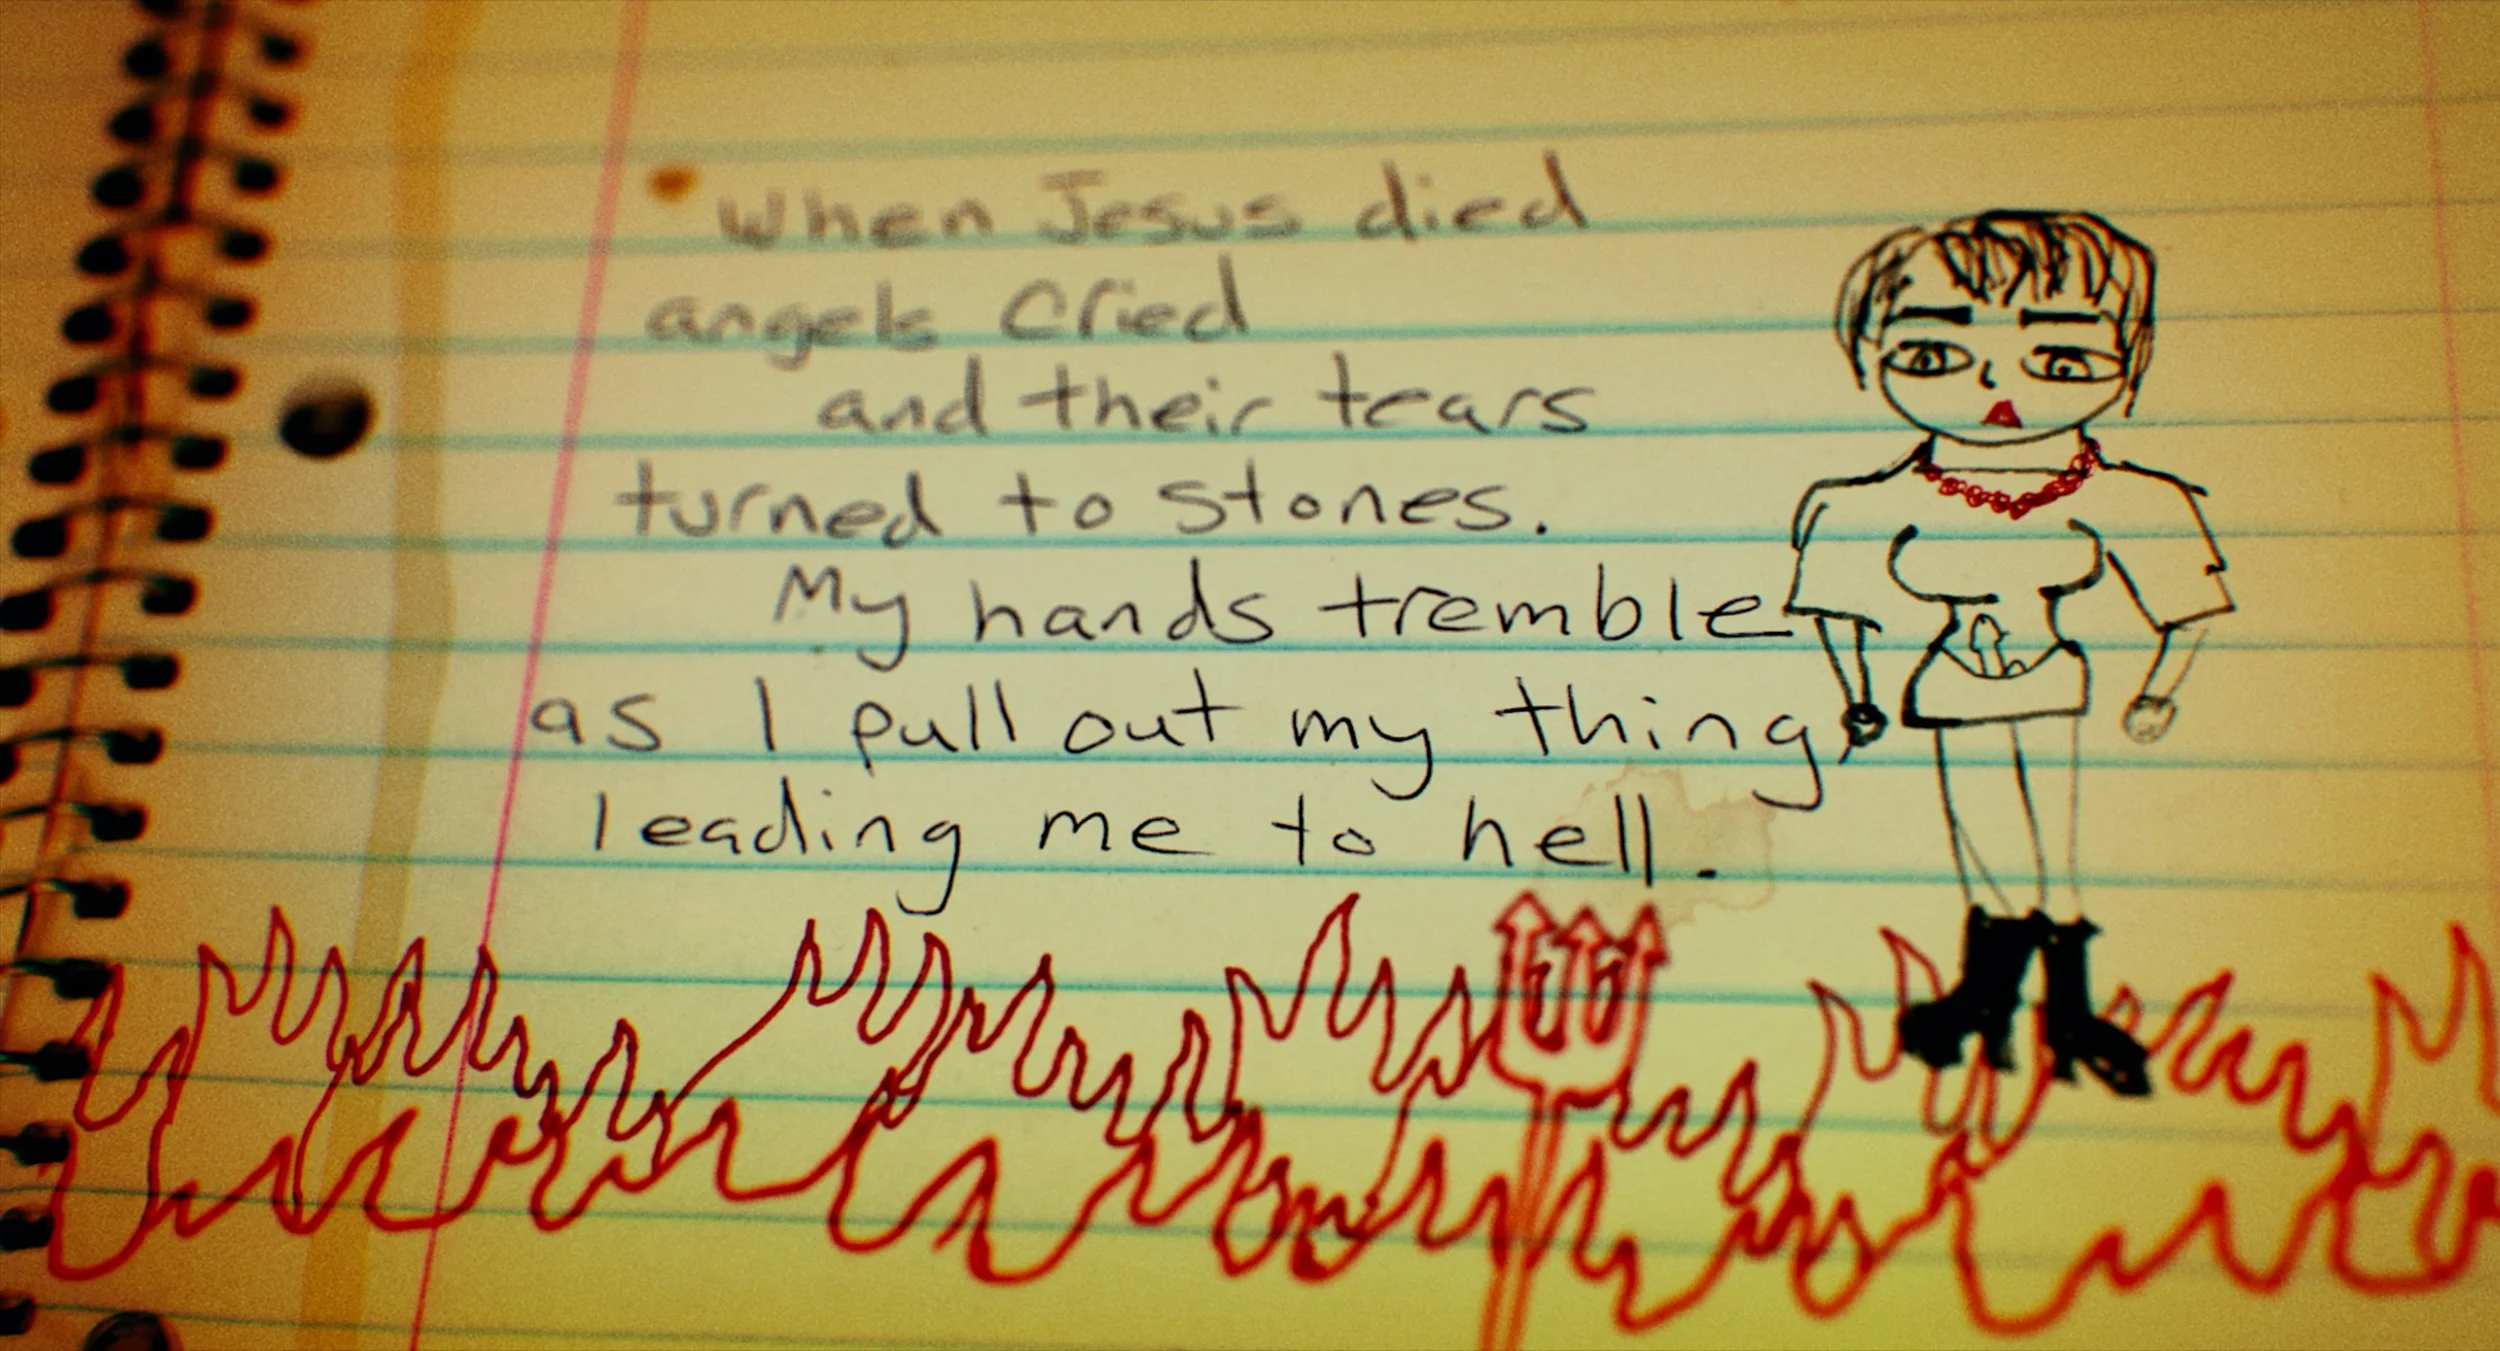 When Jesus died
angels cried
and their tears
turned to stones.
My hands tremble
as I pull out my thing
leading me to hell.